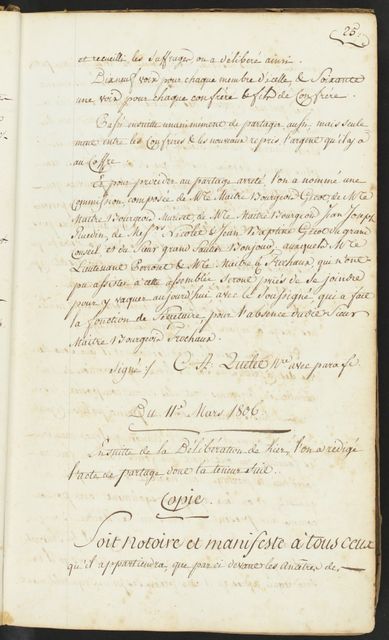 25.
et recueilli les suffrages on a délibéré ainsi.
Dixneuf voix pour chaque membre d'icelle, & Soixante
une voix pour chaque confrère & fils de Confrère.
Passé ensuite unanimement de partager aussi, mais seule
ment entre les Confrères & les nouveaux repris, l'argent qu'il y a
au Coffre.
Et pour procéder au partage arreté l'on a nommé une
Commission composée de Mr. le Maitre Bourgeois Gicot de Mr. le
Maitre Bourgeois Muriset, de Mr. le Maitre Bourgeois Jean Joseph
Ruedin, de Messrs. Nicolet & Jean Baptiste Gicot du grand
Conseil, et du Sieur grand Sautier Bonjour, auxquels Mr. le
Lieutenant Perroset & Mr. le Maitre B. Frochaux qui n'ont
pu assister à cette assemblée, seront priés de se joindre
pour y vaquer aujourd'hui avec le Soussigné, qui a fait
la fonction de Secretaire, pour l'absence dudit Sieur
Maitre Bourgeois Frochaux.
Signé :/. C. A. Quellet Nre. avec paraphe
Du 11e. Mars 1806.
Ensuite de la Délibération de hier, l'on a redigé
l'acte de partage dont la teneur suit.
Copie.
Soit notoire et manifeste à tous ceux
qu'il appartiendra, que par ci devant les Ancêtres de,